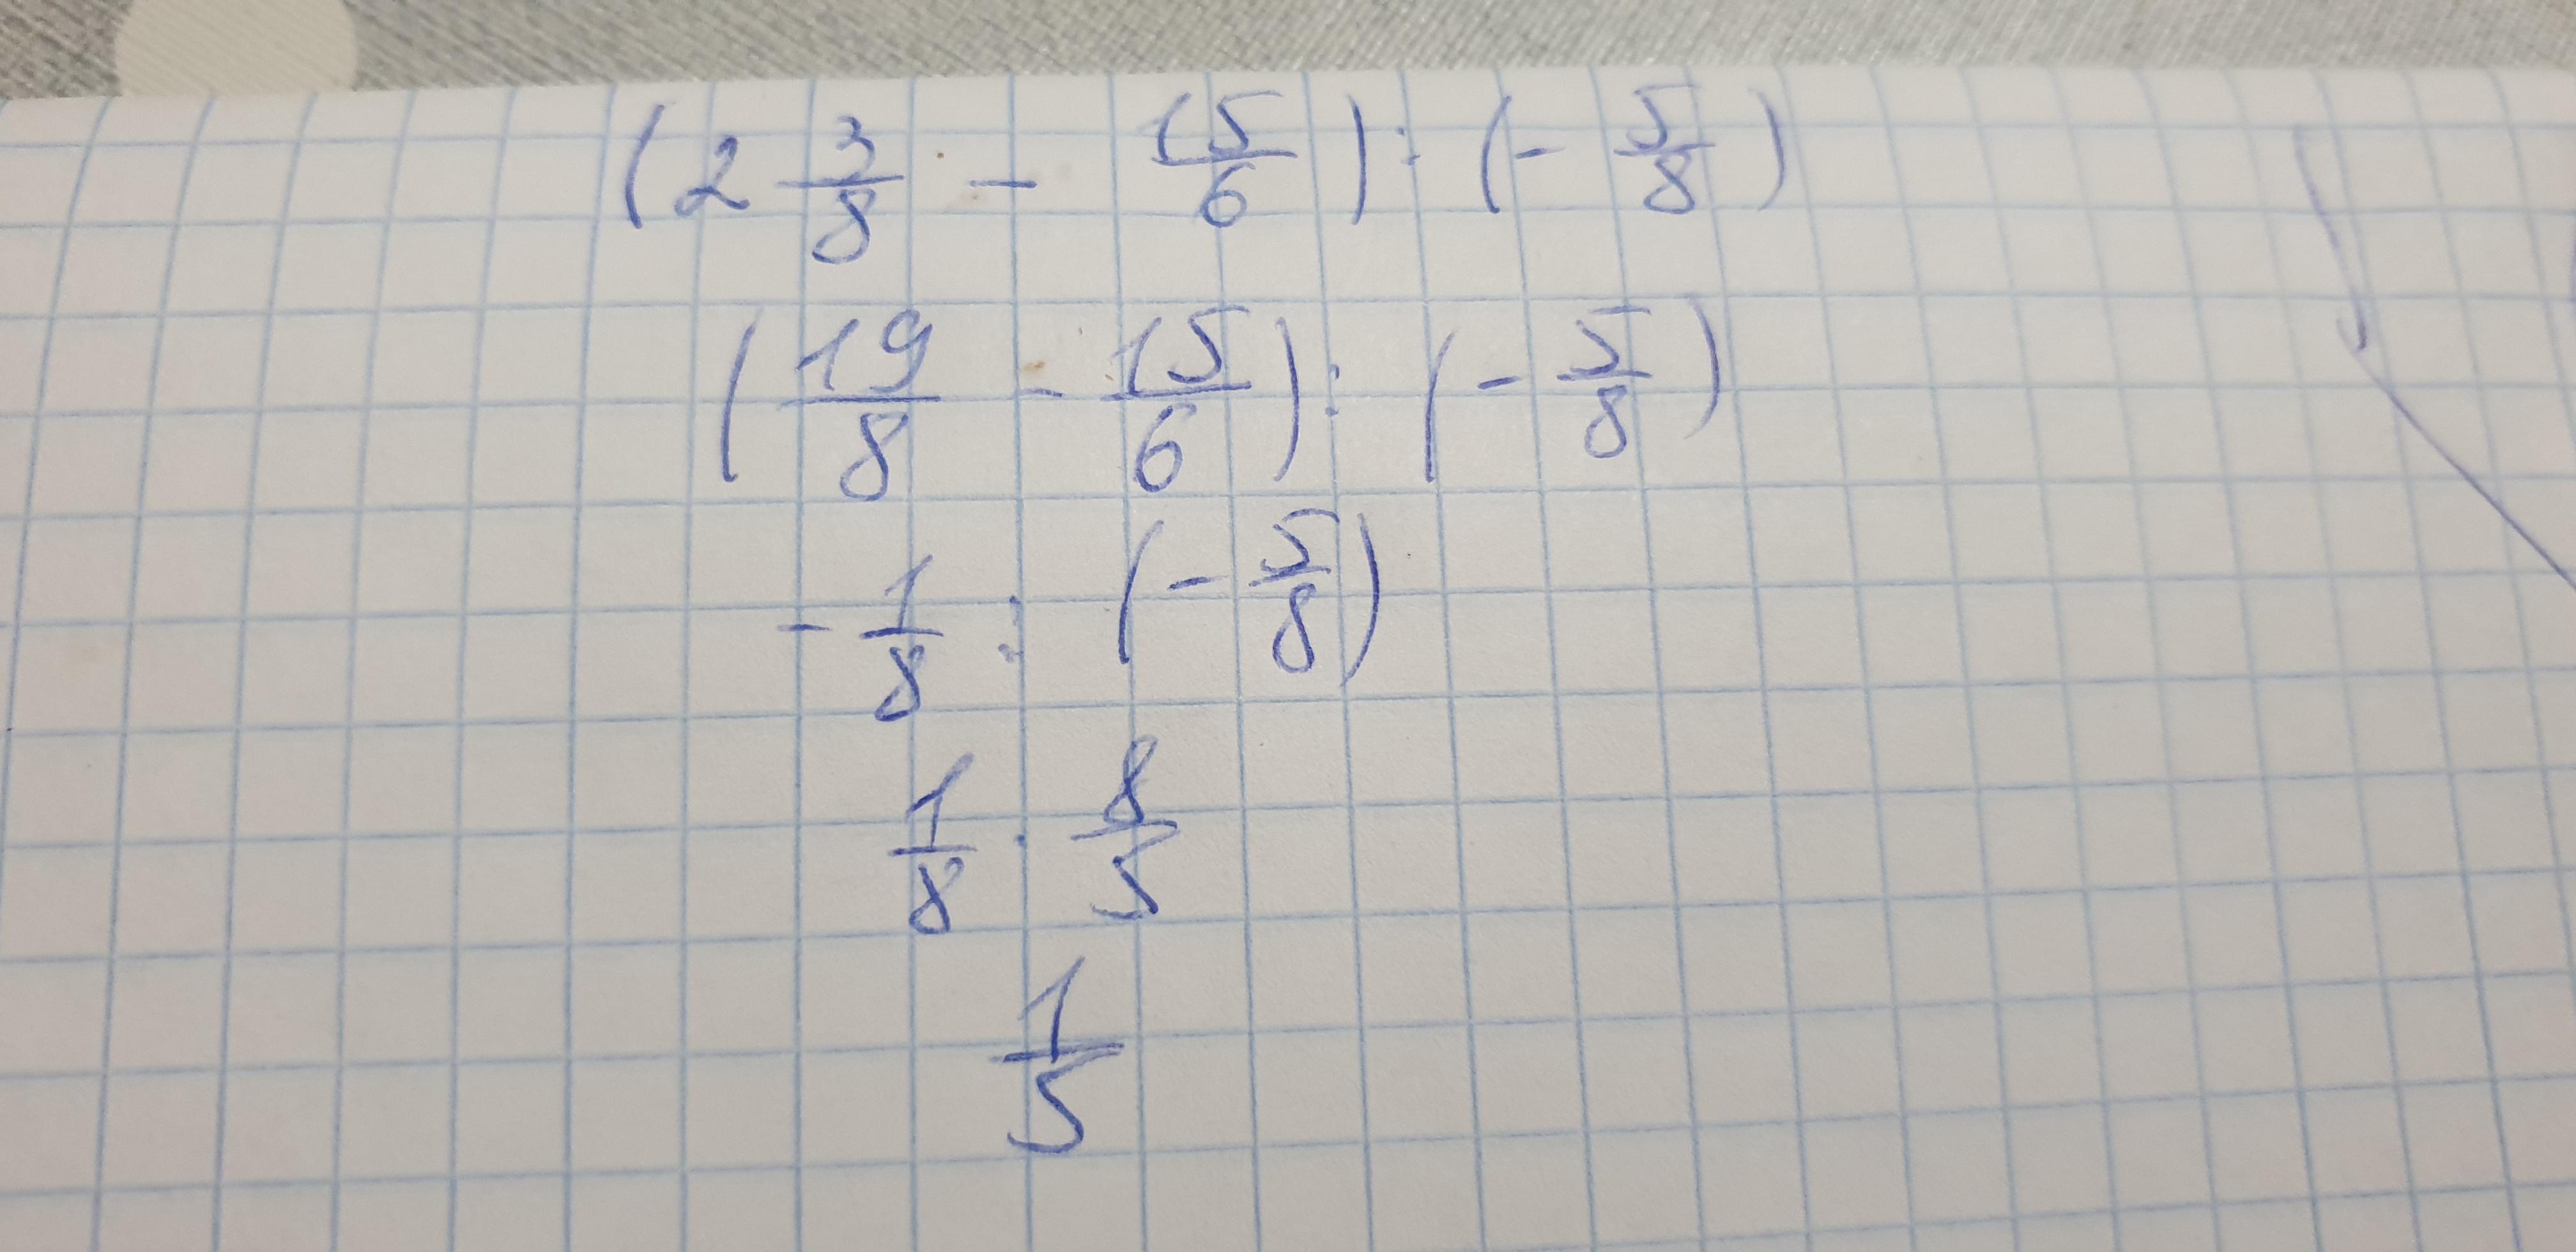 (2 3/8 - 15/6) : (- 5/8)
(19/8 - 15/6) : (- 5/8)
- 1/8 : (- 5/8)
1/8 · 8/5
1/5